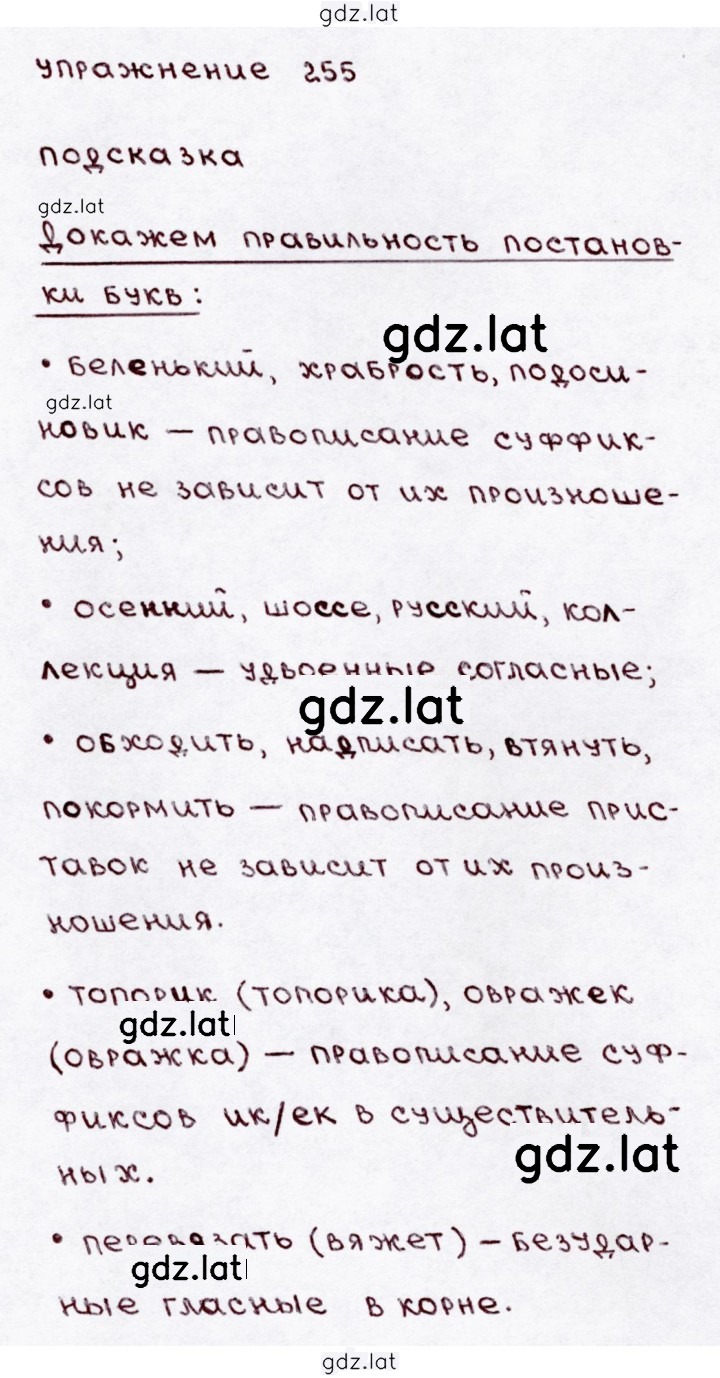 gdz.lat
упражнение 255
подсказка
gdz.lat
Докажем правильность постанов-
ки букв:
gdz.lat
• беленький, храбрость, подоси-
gdz.lat
новик — правописание суффик-
сов не зависит от их произноше-
ния;
• осенний, шоссе, русский, кол-
лекция — удвоенные согласные;
gdz.lat
• обходить, надписать, втянуть,
покормить — правописание прис-
тавок не зависит от их произ-
ношения.
• топорик (топорика), овражек
gdz.lat
(овражка) — правописание суф-
фиксов ик/ек в существитель-
gdz.lat
ных.
• (вяжет) – безудар-
gdz.lat
ные гласные в корне.
gdz.lat